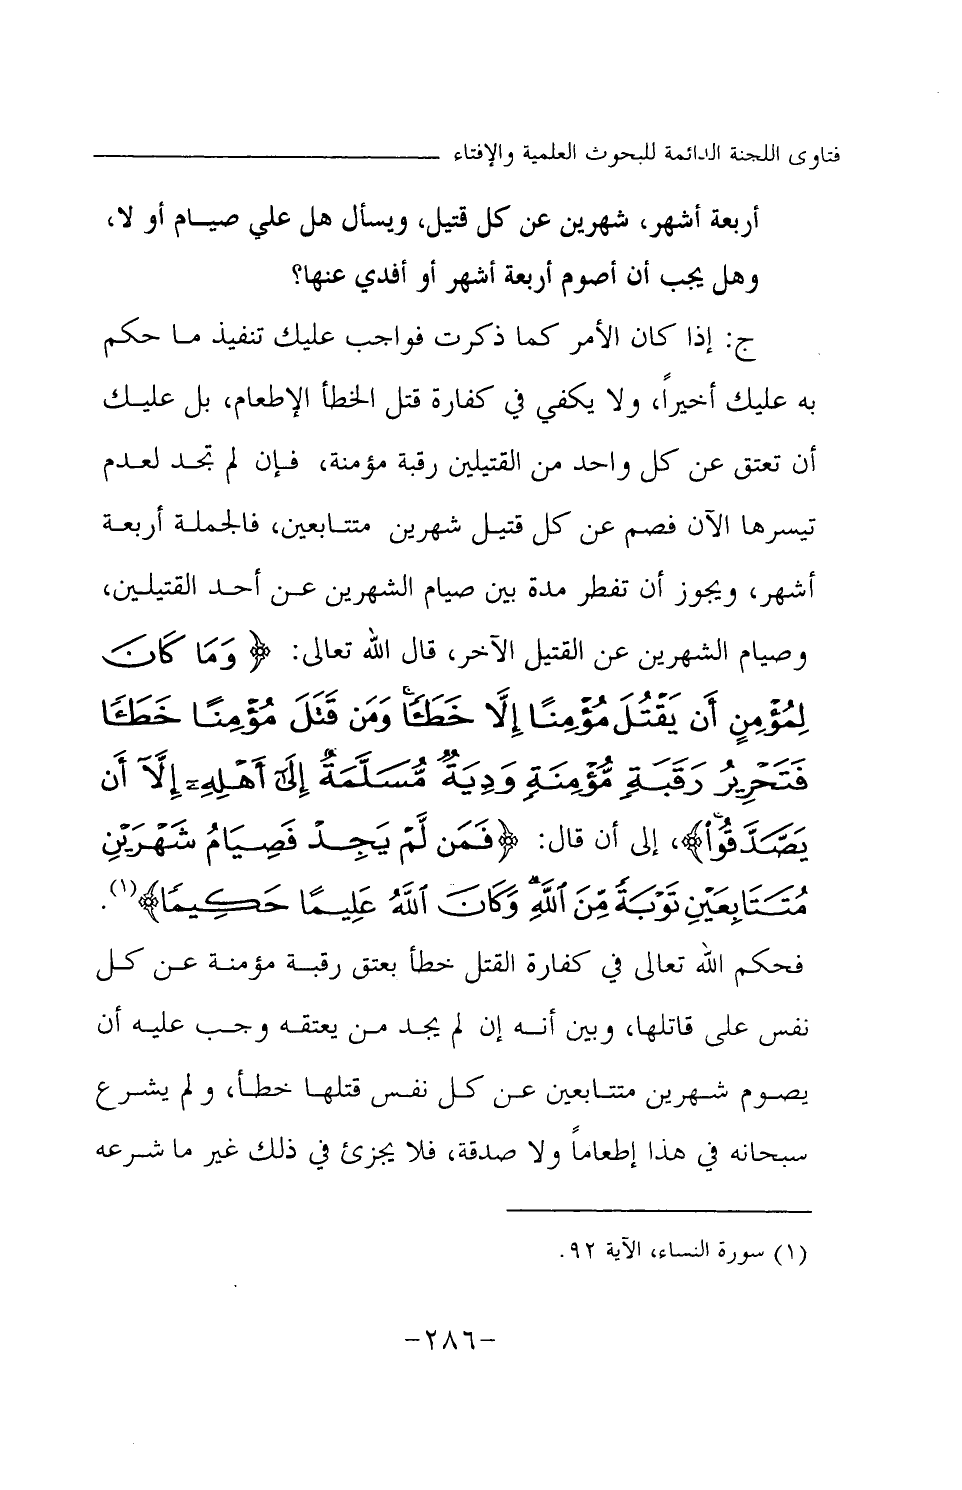 فتاوى اللجنة الدائمة للبحوث العلمية والإفتاء
أربعة أشهر، شهرين عن كل قتيل، ويسأل هل علي صيـام أو لا،
وهل يجب أن أصوم أربعة أشهر أو أفدي عنها؟
ج: إذا كان الأمر كما ذكرت فواجب عليك تنفيذ مـا حكم
به عليك أخيراً، ولا يكفي في كفارة قتل الخطأ الإطعام، بل عليـك
أن تعتق عن كل واحد من القتيلين رقبة مؤمنة، فـإن لم تجـد لعدم
تيسرها الآن فصم عن كل قتيـل شهرين متتـابعين، فالجملـة أربعـة
أشهر، ويجوز أن تفطر مدة بين صيام الشهرين عـن أحـد القتيلـين،
وصيام الشهرين عن القتيل الآخر، قال الله تعالى: ﴿ وَمَا كَانَ
لِمُؤْمِنٍ أَن يَقْتُلَ مُؤْمِنًا إِلَّا خَطَـًٔا ۚ وَمَن قَتَلَ مُؤْمِنًا خَطَـًٔا
فَتَحْرِيرُ رَقَبَةٍ مُّؤْمِنَةٍ وَدِيَةٌ مُّسَلَّمَةٌ إِلَىٰٓ أَهْلِهِۦٓ إِلَّآ أَن
يَصَّدَّقُوا۟ ۚ﴾، إلى أن قال: ﴿فَمَن لَّمْ يَجِدْ فَصِيَامُ شَهْرَيْنِ
مُتَتَابِعَيْنِ تَوْبَةً مِّنَ ٱللَّهِ ۗ وَكَانَ ٱللَّهُ عَلِيمًا حَكِيمًا﴾(١).
فحكم الله تعالى في كفارة القتل خطأ بعتق رقبـة مؤمنـة عـن كـل
نفس على قاتلها، وبين أنـه إن لم يجـد مـن يعتقـه وجـب عليـه أن
يصـوم شـهرين متتـابعين عـن كـل نفس قتلهـا خطـأ، ولم يشـرع
سبحانه في هذا إطعاماً ولا صدقة، فلا يجزئ في ذلك غير ما شـرعه
(١) سورة النساء، الآية ٩٢.
-٢٨٦-